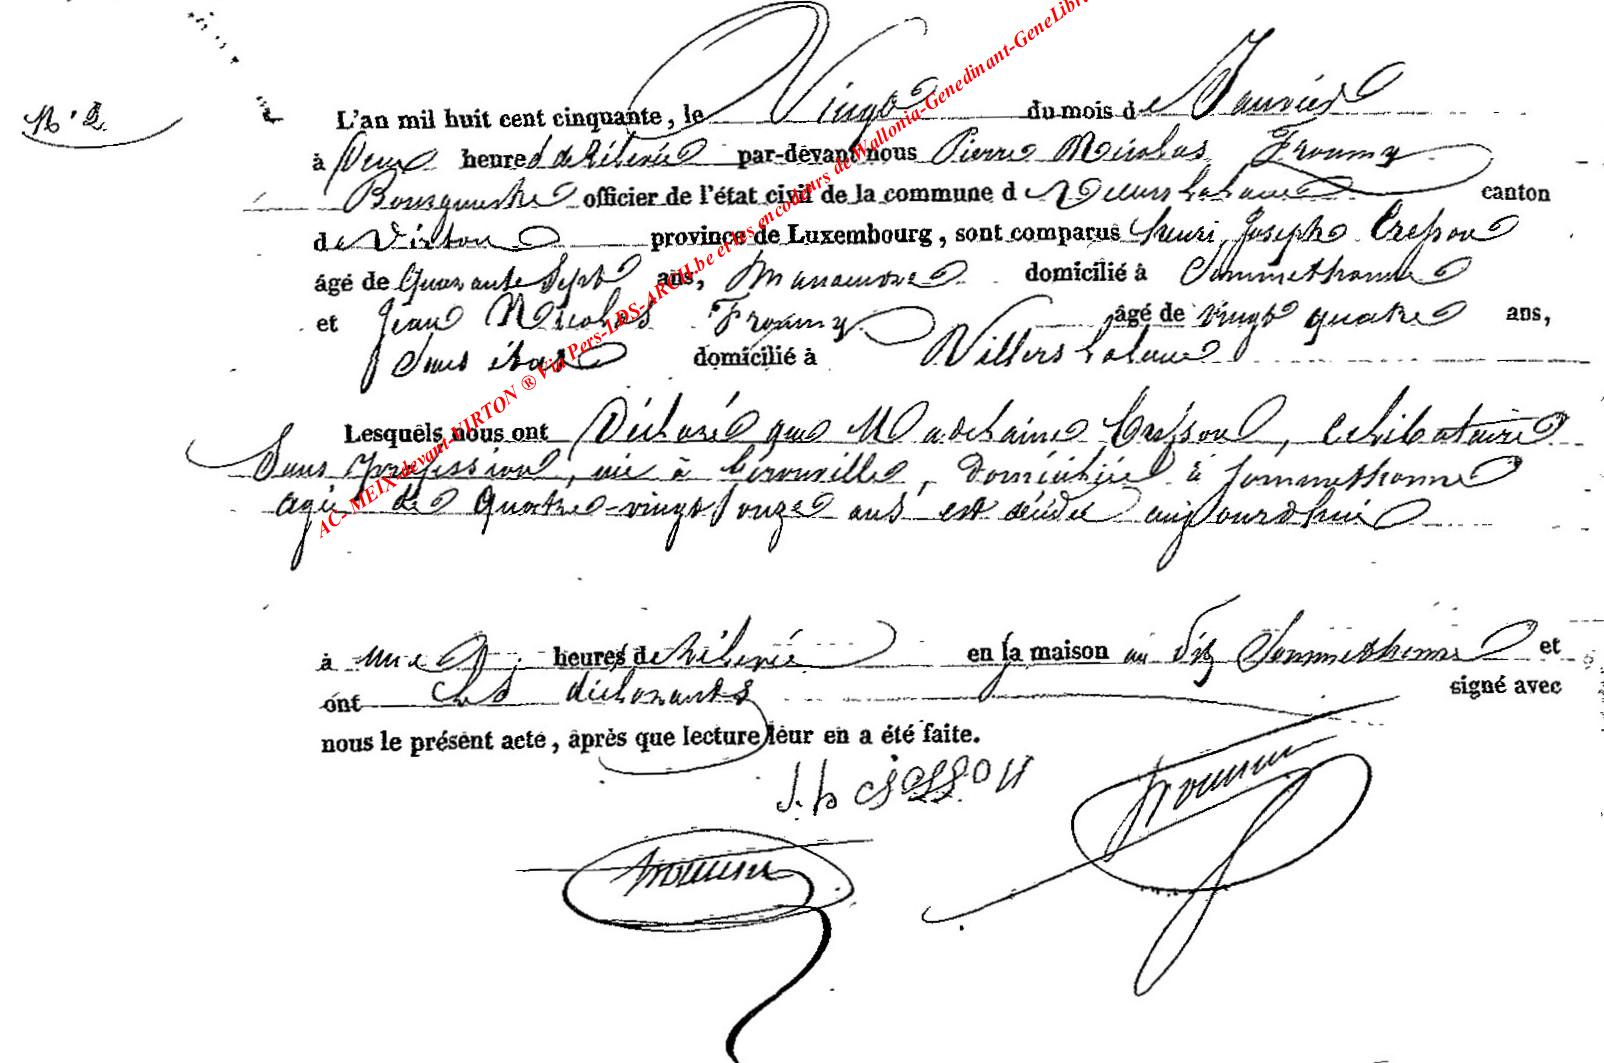 N° 2.
L'an mil huit cent cinquante, le Vingt du mois de Janvier
à Deux heures de relevée par-devant nous Pierre Nicolas Froumy
Bourguemestre officier de l'état civil de la commune de Villers la loue canton
de Virton province de Luxembourg, sont comparus Henri Joseph Cresson
âgé de Quarante Sept ans, Manoeuvre domicilié à Sommethonne
et Jean Nicolas Froumy âgé de vingt quatre ans,
Sans état domicilié à Villers la loue
Lesquels nous ont Déclaré que Madelaine Cresson, Celibataire
Sans profession, née à domiciliée à Sommethonne
agée de Quatre-vingt onze ans est décédée aujourdhui
à une heures de relevée en la maison au dit Sommethonne et
ont les déclarants signé avec
nous le présent acte, après que lecture leur en a été faite.
AC- MEIX-devant-VIRTON ® Via Pers-LDS-ARCH.be et les encodeurs de Wallonia-Genedinant-GeneLibr